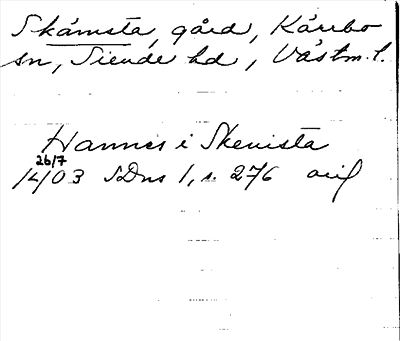 Skämsta, gård, Kärrbo
sn, Siende hd, Västm. l.
Hannes i Skemista
26/7
1403 SDns 1, s. 276 avf